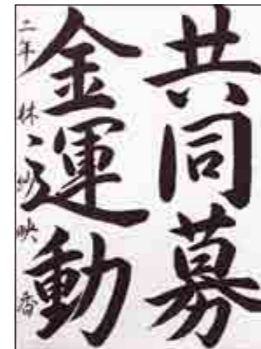 共同募
金運動
二年 林 紗映香